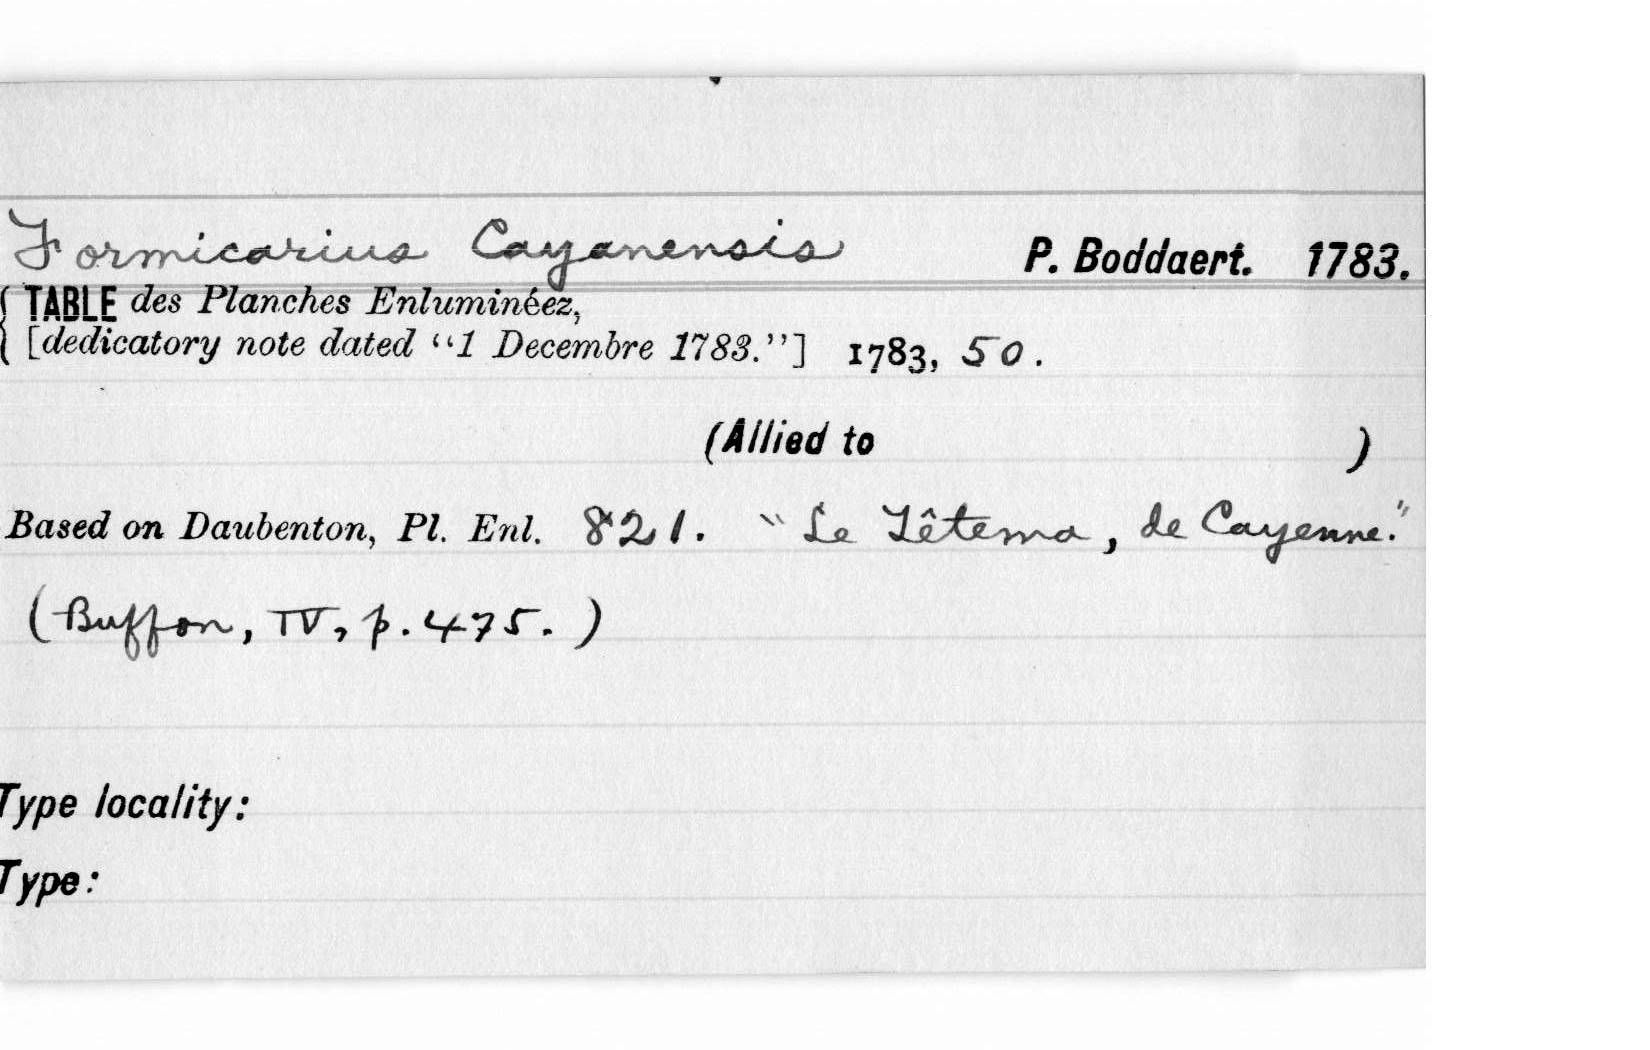 Formicarius Cayanensis P. Boddaert. 1783.
TABLE des Planches Enluminéez,
[dedicatory note dated “1 Decembre 1783.”] 1783, 50.
(Allied to )
Based on Daubenton, Pl. Enl. 821. "Le Têtema, de Cayenne."
(Buffon, IV, p. 475.)
Type locality:
Type: